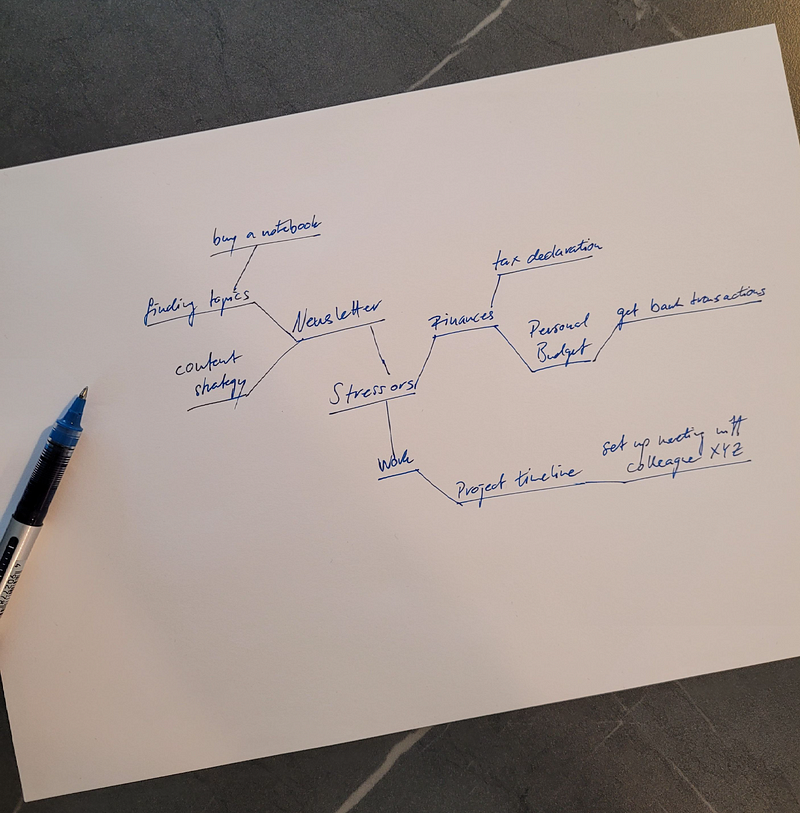 buy a notebook
finding topics
content
strategy
Newsletter
Stressors
Finances
tax declaration
Personal
Budget
get bank transactions
Work
Project timeline
set up meeting with
colleague XYZ